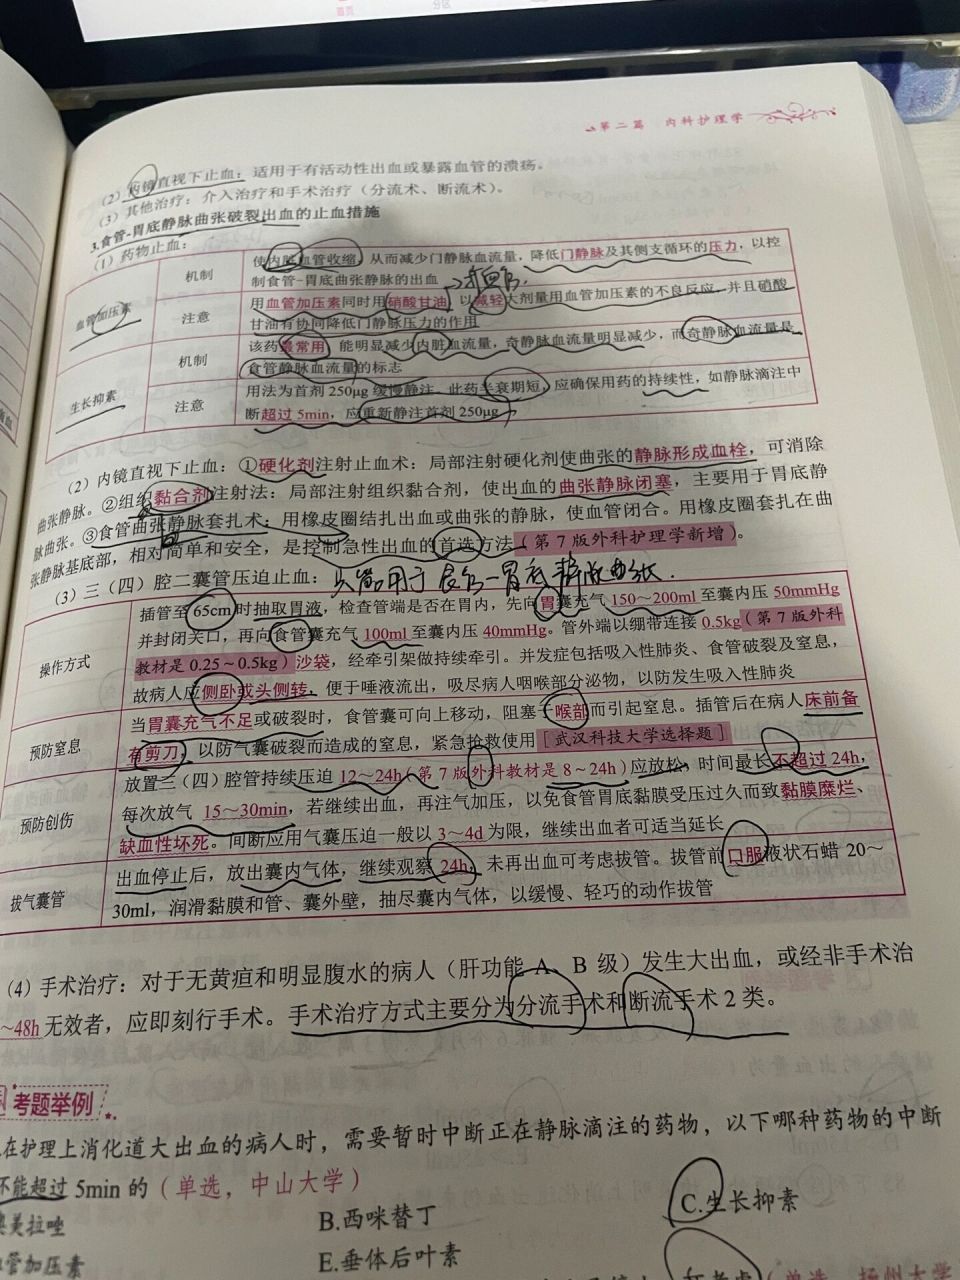 首页
分区
第二篇 内科护理学
(2)内镜直视下止血:适用于有活动性出血或暴露血管的溃疡。
(3)其他治疗:介入治疗和手术治疗(分流术、断流术)。
3.食管-胃底静脉曲张破裂出血的止血措施
(1)药物止血:
血管加压素
机制
使内脏血管收缩,从而减少门静脉血流量,降低门静脉及其侧支循环的压力,以控
制食管-胃底曲张静脉的出血
注意
用血管加压素同时用硝酸甘油,以减轻大剂量用血管加压素的不良反应,并且硝酸
甘油有协同降低门静脉压力的作用
生长抑素
机制
该药最常用,能明显减少内脏血流量,奇静脉血流量明显减少,而奇静脉血流量是
食管静脉血流量的标志
注意
用法为首剂 250μg 缓慢静注。此药半衰期短,应确保用药的持续性,如静脉滴注中
断超过 5min,应重新静注首剂 250μg
(2)内镜直视下止血:①硬化剂注射止血术:局部注射硬化剂使曲张的静脉形成血栓,可消除
曲张静脉。②组织黏合剂注射法:局部注射组织黏合剂,使出血的曲张静脉闭塞,主要用于胃底静
脉曲张。③食管曲张静脉套扎术:用橡皮圈结扎出血或曲张的静脉,使血管闭合。用橡皮圈套扎在曲
张静脉基底部,相对简单和安全,是控制急性出血的首选方法(第 7 版外科护理学新增)。
(3)三(四)腔二囊管压迫止血:只需用于食管-胃底静脉曲张.
操作方式
插管至 65cm 时抽取胃液,检查管端是否在胃内,先向胃囊充气 150~200ml 至囊内压 50mmHg
并封闭关口,再向食管囊充气 100ml 至囊内压 40mmHg。管外端以绷带连接 0.5kg(第 7 版外科
教材是 0.25~0.5kg)沙袋,经牵引架做持续牵引。并发症包括吸入性肺炎、食管破裂及窒息,
故病人应侧卧或头侧转,便于唾液流出,吸尽病人咽喉部分泌物,以防发生吸入性肺炎
预防窒息
当胃囊充气不足或破裂时,食管囊可向上移动,阻塞于喉部而引起窒息。插管后在病人床前备
有剪刀,以防气囊破裂而造成的窒息,紧急抢救使用[武汉科技大学选择题]
预防创伤
放置三(四)腔管持续压迫 12~24h(第 7 版外科教材是 8~24h)应放松,时间最长不超过 24h,
每次放气 15~30min,若继续出血,再注气加压,以免食管胃底黏膜受压过久而致黏膜糜烂、
缺血性坏死。间断应用气囊压迫一般以 3~4d 为限,继续出血者可适当延长
拔气囊管
出血停止后,放出囊内气体,继续观察 24h,未再出血可考虑拔管。拔管前口服液状石蜡 20~
30ml,润滑黏膜和管、囊外壁,抽尽囊内气体,以缓慢、轻巧的动作拔管
(4)手术治疗:对于无黄疸和明显腹水的病人(肝功能 A、B 级)发生大出血,或经非手术治
~48h 无效者,应即刻行手术。手术治疗方式主要分为分流手术和断流手术 2 类。
考题举例
在护理上消化道大出血的病人时,需要暂时中断正在静脉滴注的药物,以下哪种药物的中断
不能超过 5min 的(单选,中山大学)
奥美拉唑
B.西咪替丁
C.生长抑素
管加压素
E.垂体后叶素